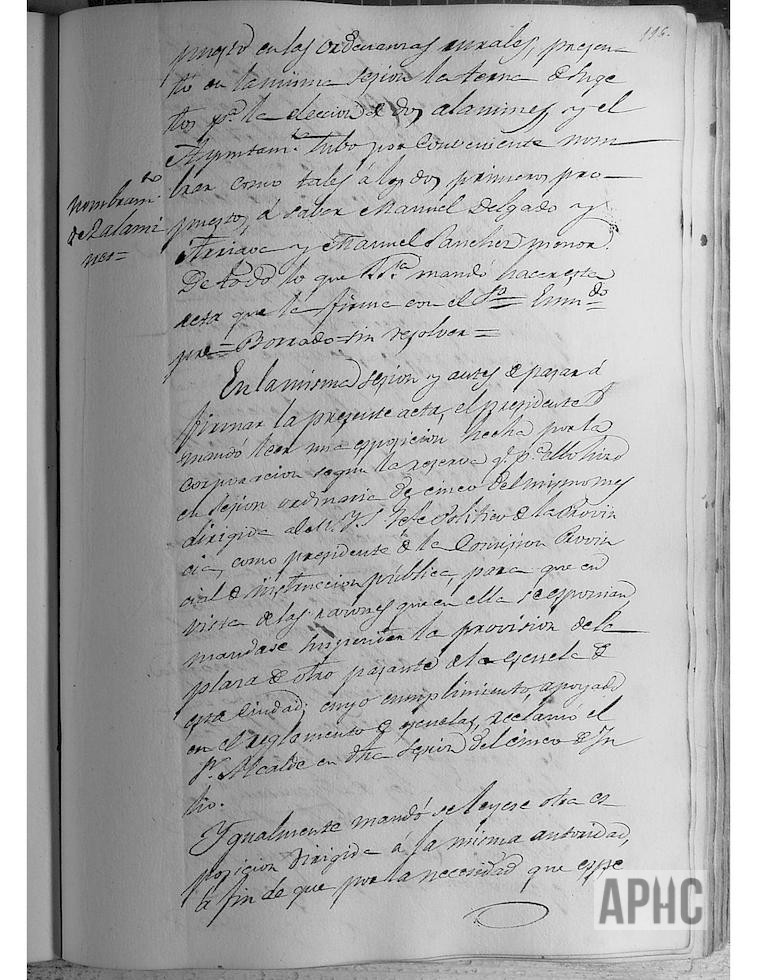 116.
puesto en las ordenanzas rurales, presen-
tó en la misma sesion la terna de suge
tos p.ª la eleccion de dos alamines, y el
Ayuntam.to tubo por conveniente nom-
brar como tales á los dos primeros pro-
puestos, á saber Manuel Delgado y
y Manuel Sanchez menor.
De todo lo que S.Sª mandó hacer esta
acta que la firma con el Sº= Enm.do
pre= Borrado= sin resolver=
nombram.to
de 2 alami
nes=
En la misma sesion y antes de pasar á
firmar la presente acta, el presidente
mandó leer una esposicion hecha por la
corporacion segun la reserva q.e p.ª ello hizo
en sesion ordinaria de cinco del mismo mes
dirigida al M.Y.S. Gefe Politico de la Provin
cia, como presidente de la Comision Provin
cial de instruccion pública, para que en
vista de las razones que en ella se esponian
mandase suspender la provision de la
plaza de otro pasante de la escuela de
esta Ciudad; cuyo cumplimiento, apoyado
en el reglamento de escuelas, reclamó el
Sr. Alcalde en dha sesion del cinco de Ju
lio.
Ygualmente mandó se leyese otra es-
posicion dirigida á la misma autoridad,
á fin de que por la necesidad que espe
APHC